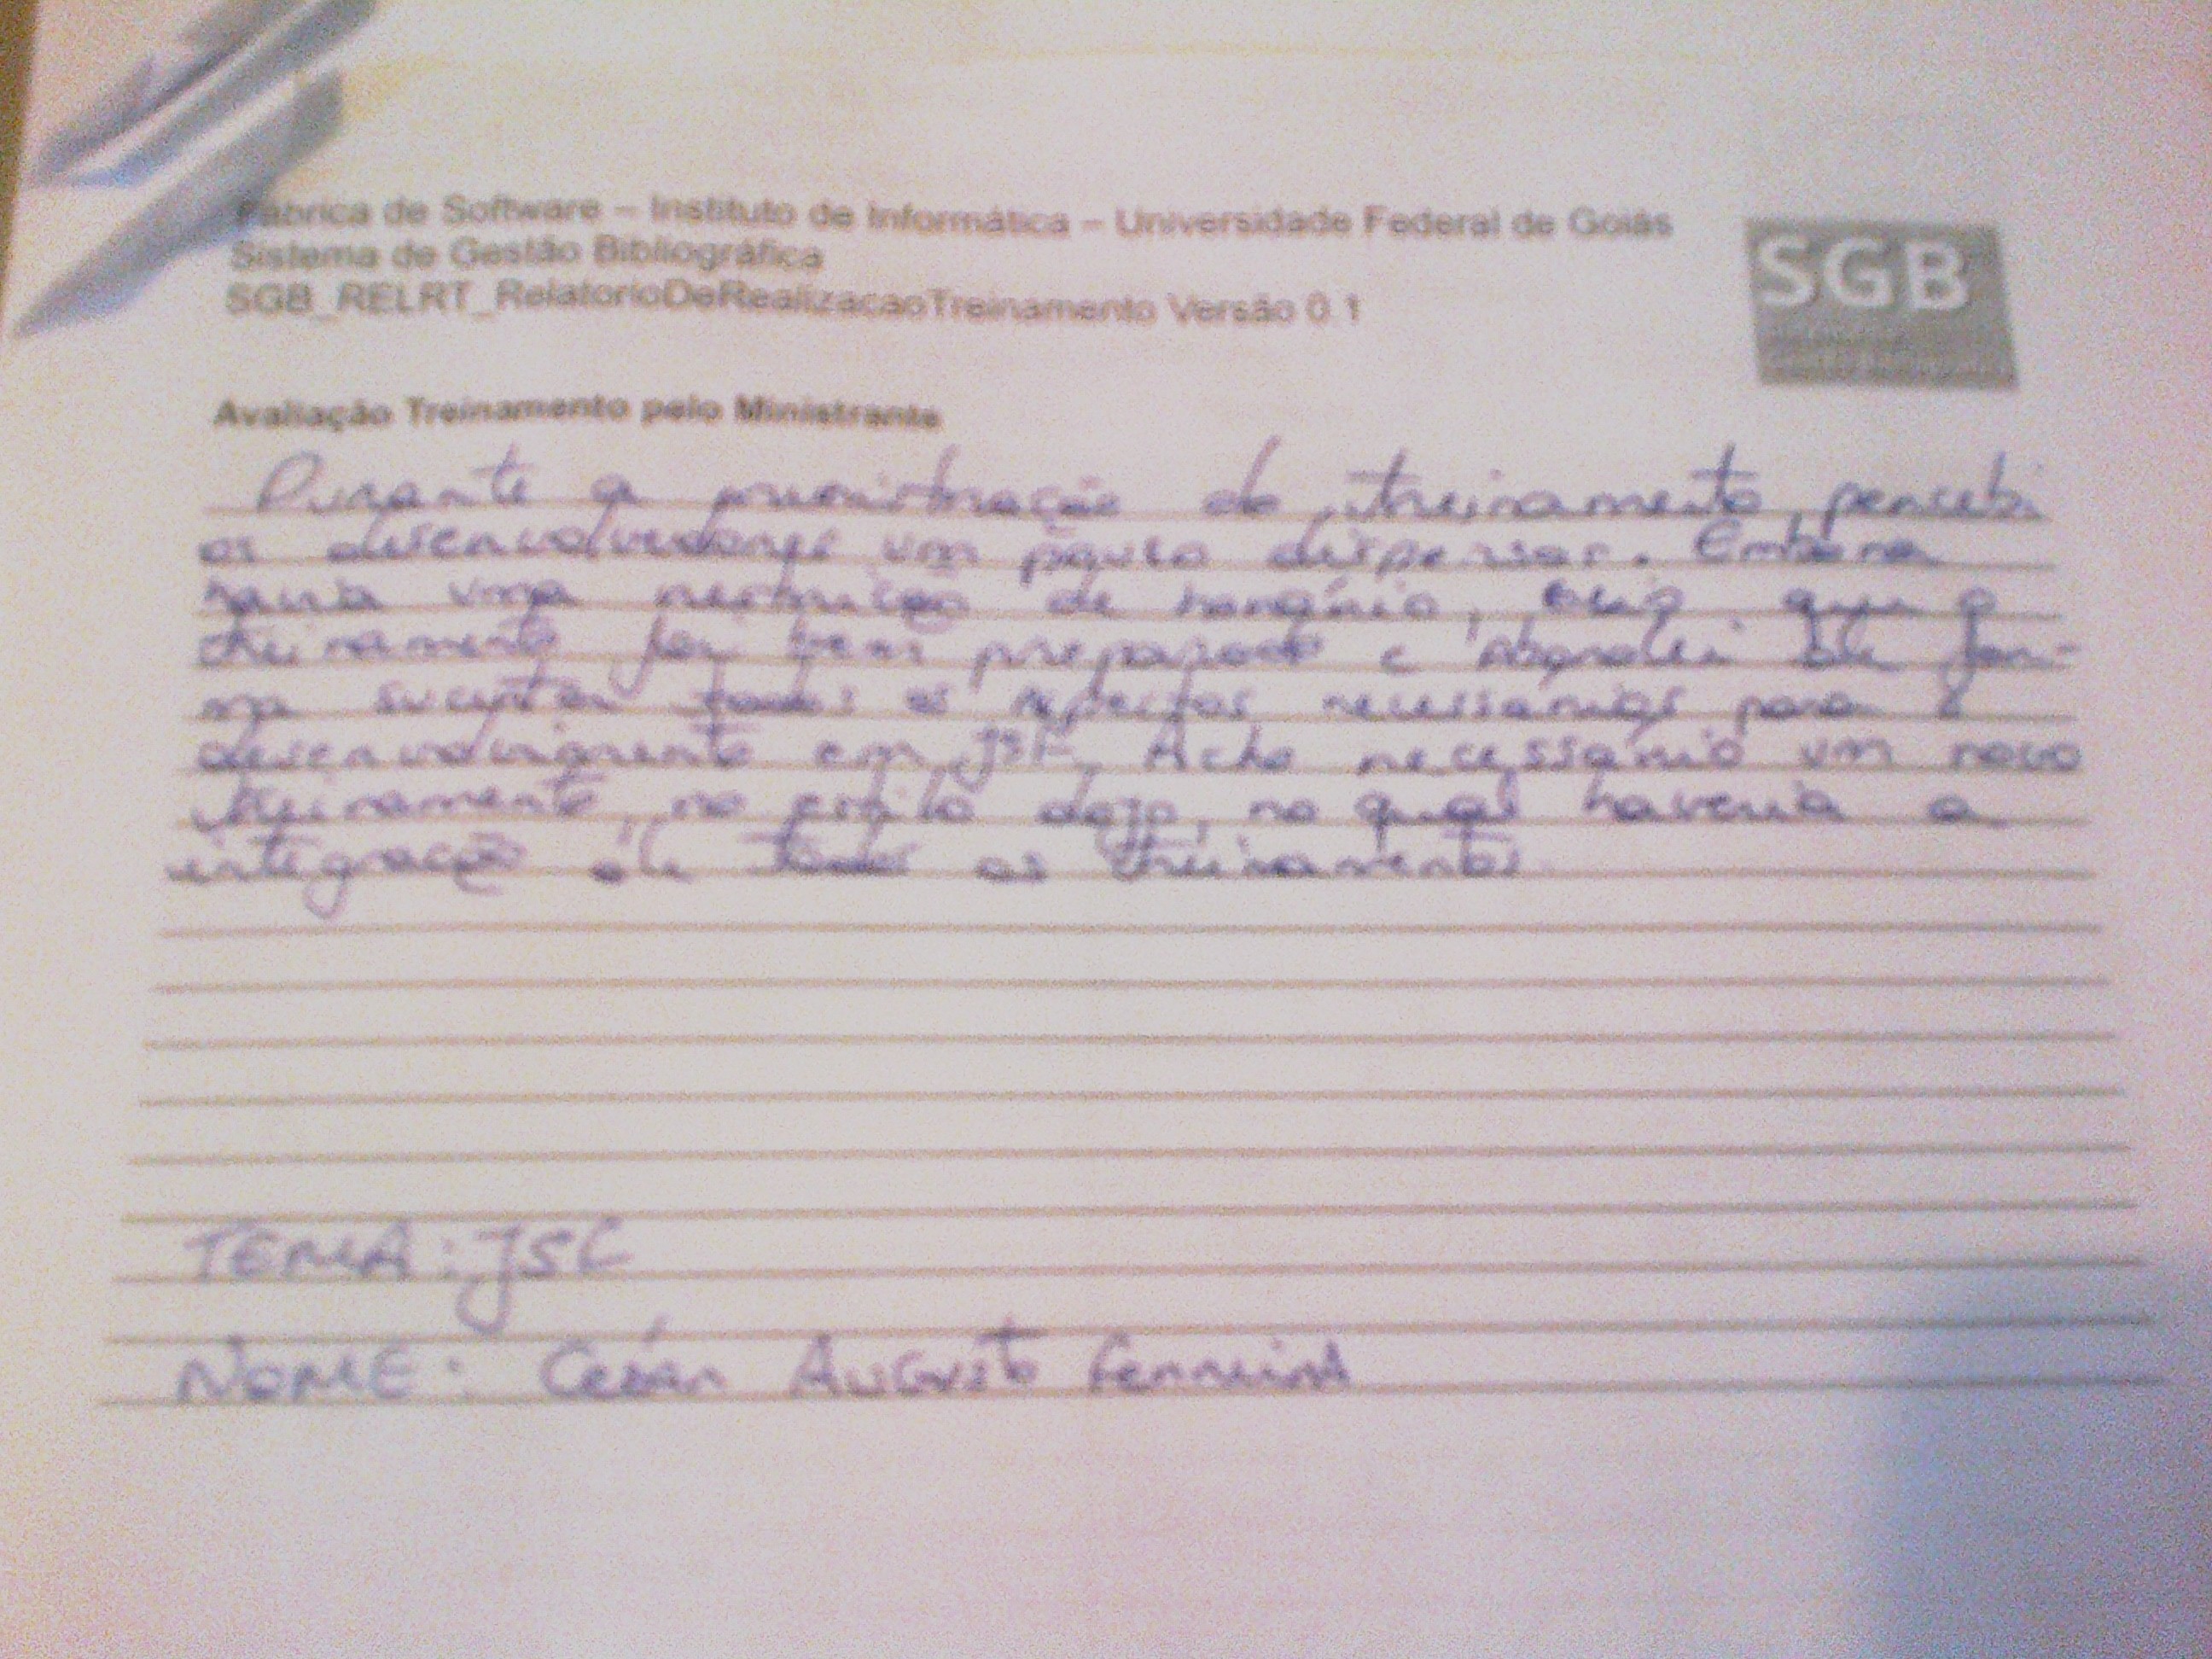 Fábrica de Software – Instituto de Informática – Universidade Federal de Goiás
Sistema de Gestão Bibliográfica
SGB_RELRT_RelatorioDeRealizacaoTreinamento Versão 0.1
SGB
Avaliação Treinamento pelo Ministrante
Durante a ministração do treinamento, percebi
os desenvolvedores um pouco dispersos. Embora
havia uma restrição de horário, creio que o
treinamento foi bem preparado e abordei de for-
ma sucinta todos os aspectos necessários para o
desenvolvimento em JSF. Acho necessário um novo
treinamento, no estilo dojo, no qual haveria a
integração de todos os treinamentos.
TEMA: JSF
NOME: Cesár Augusto Ferreira